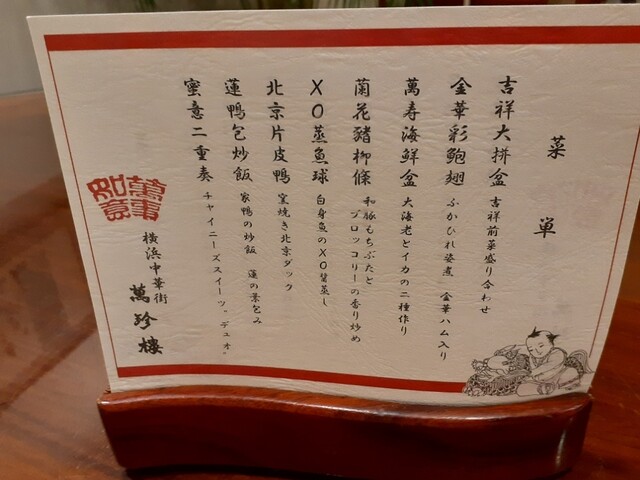 菜単
吉祥大拼盆 吉祥前菜盛り合わせ
金華彩鮑翅 ふかひれ姿煮 金華ハム入り
萬寿海鮮盆 大海老とイカの二種作り
蘭花豬柳條 和豚もちぶたとブロッコリーの香り炒め
XO蒸魚球 白身魚のXO醤蒸し
北京片皮鴨 窯焼き北京ダック
蓮鴨包炒飯 家鴨の炒飯 蓮の葉包み
蜜意二重奏 チャイニーズスイーツ“デュオ”
萬事如意
横浜中華街
萬珍樓